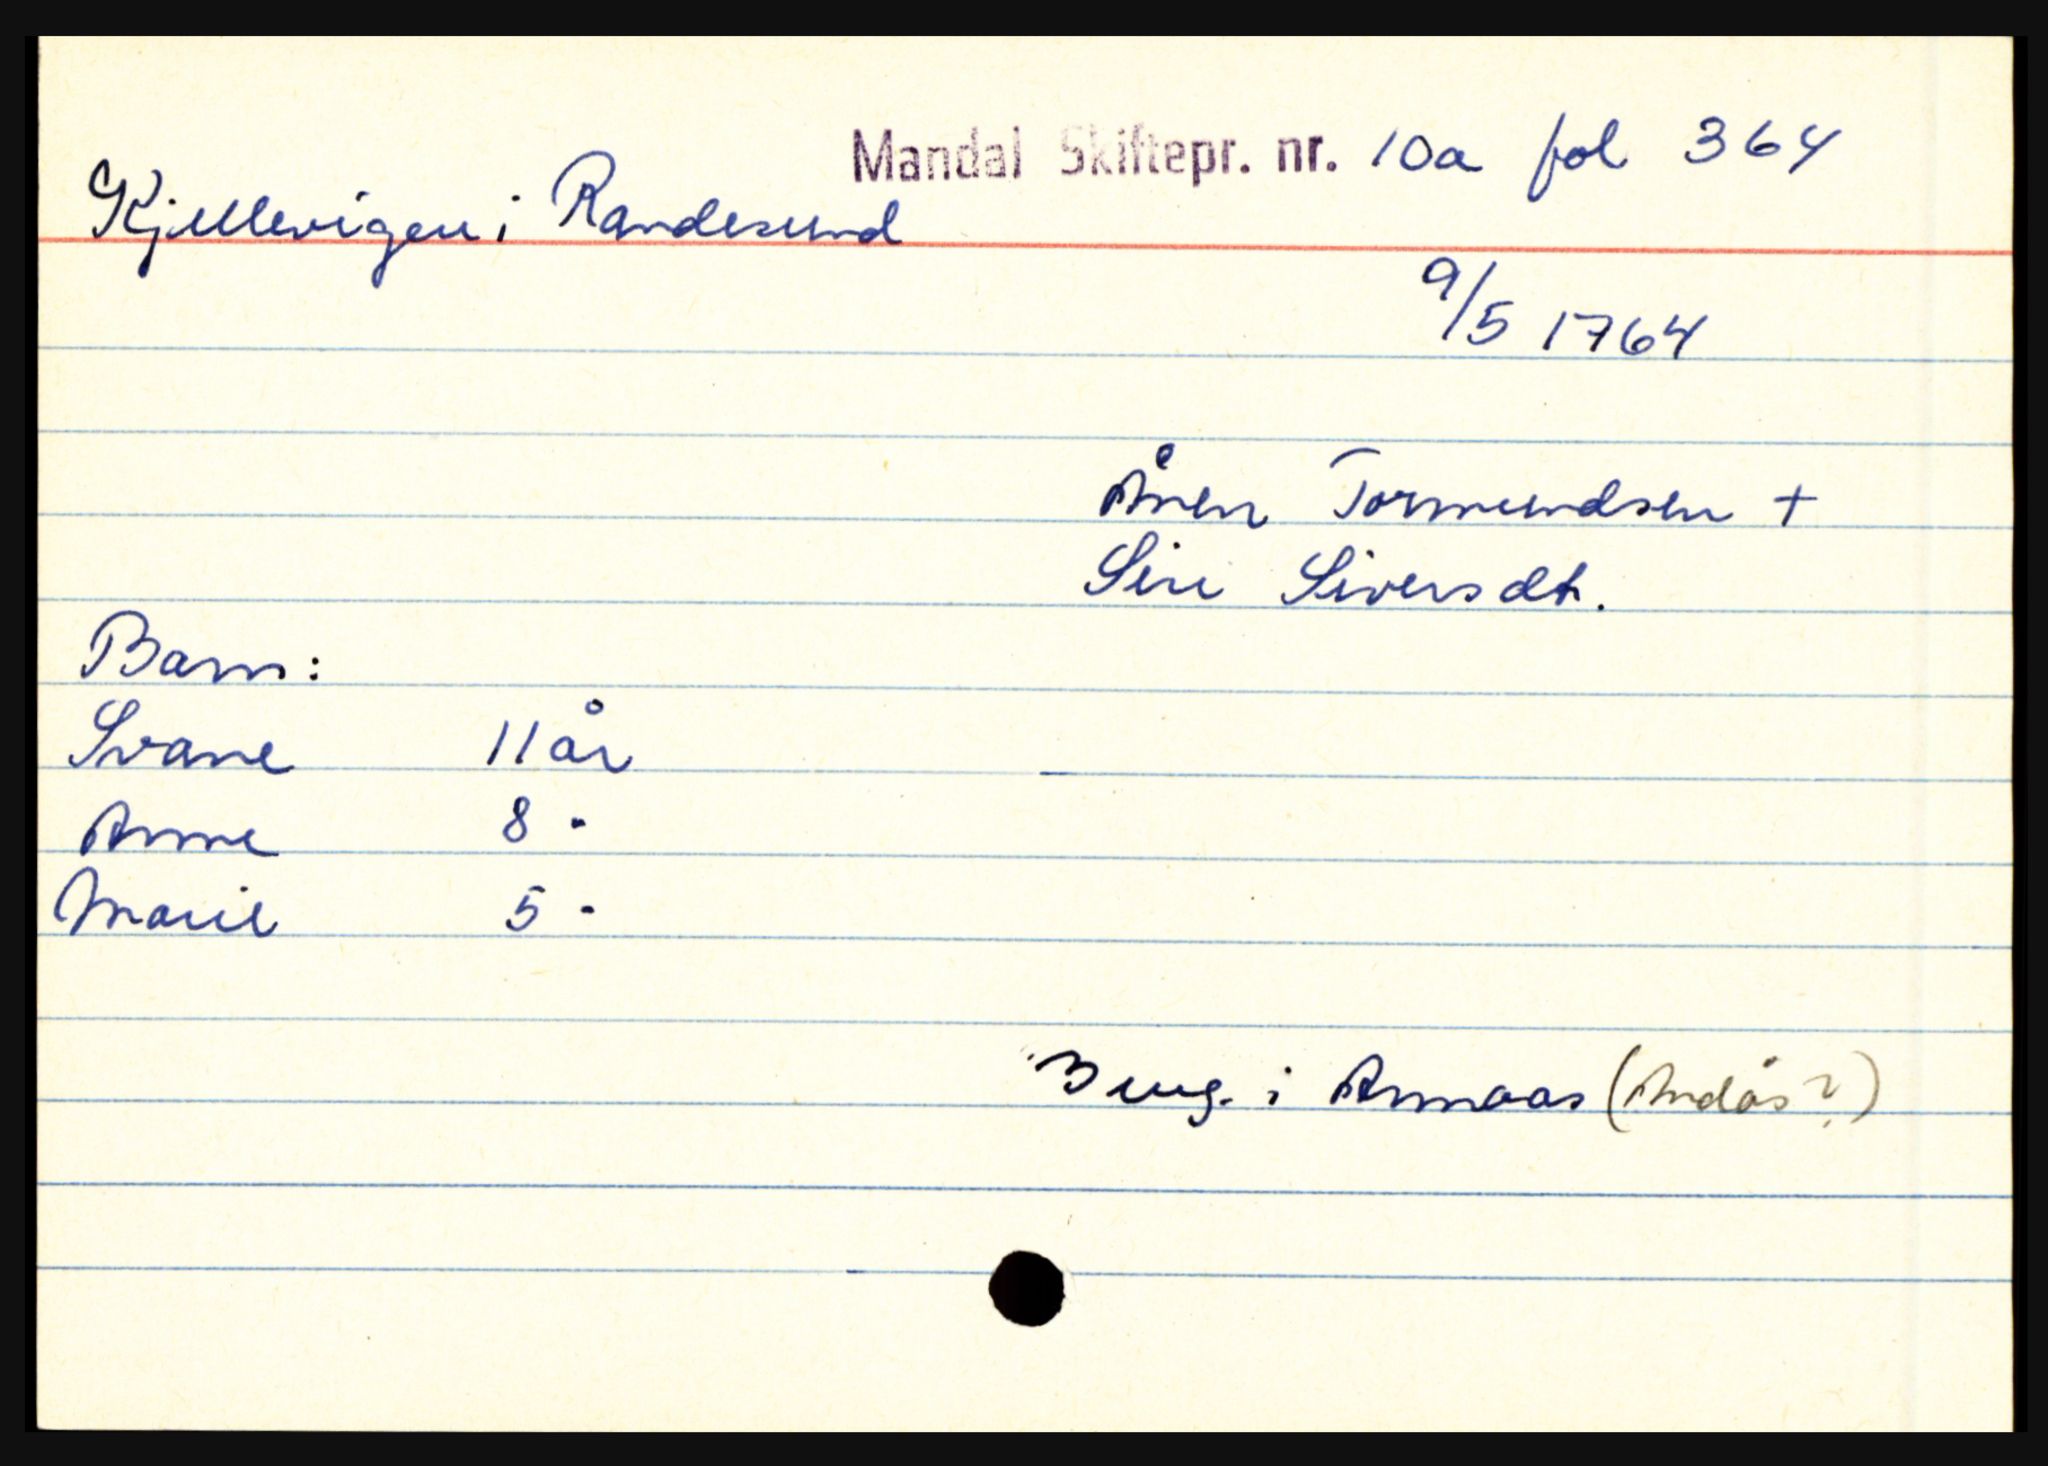 Mandal Skiftepr. nr. 10a fol 364
Kjellevigen i Randesund
9/5 1764
Ånen Tormundsen +
Siri Siversdt.
Barn:
Svane 11 år
Anne 8 -
Marie 5 -
3 ung. i Annaas (Andås?)